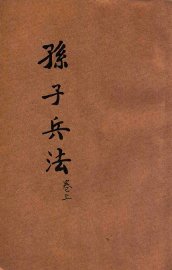 孫子兵法
卷上